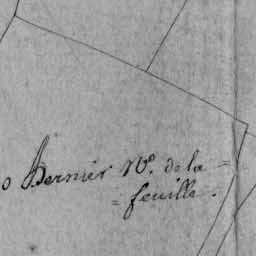 o Dernier N.º de la =
= feuille.